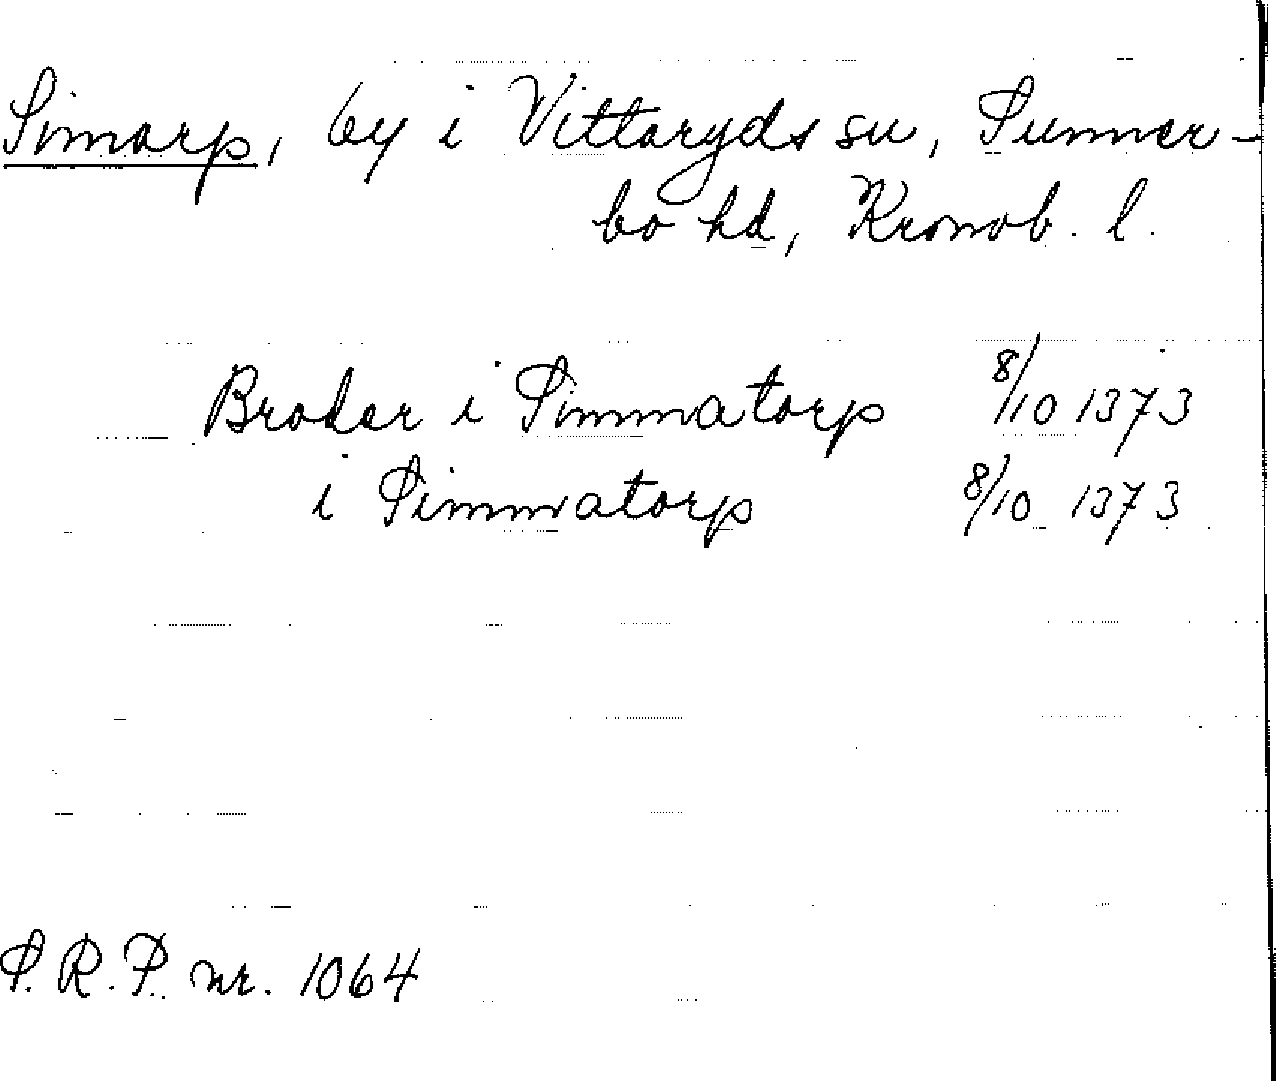 Simarp, by i Vittaryds sn, Sunner-
bo hd, Kronob. l.
Broder i Simmatorp 8/10 1373
i Simmatorp 8/10 1373
S.R.P. nr. 1064